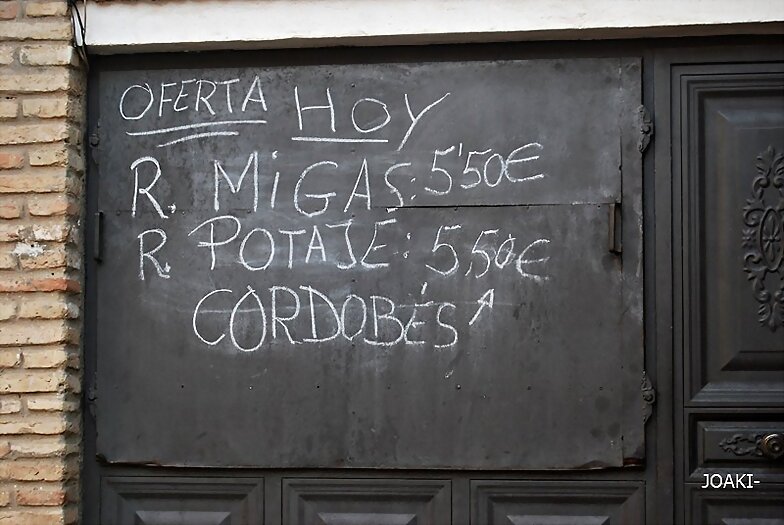 OFERTA HOY
R. MiGAS: 5'50€
R. POTAJE: 5,50€
CORDOBÉS
JOAKI-